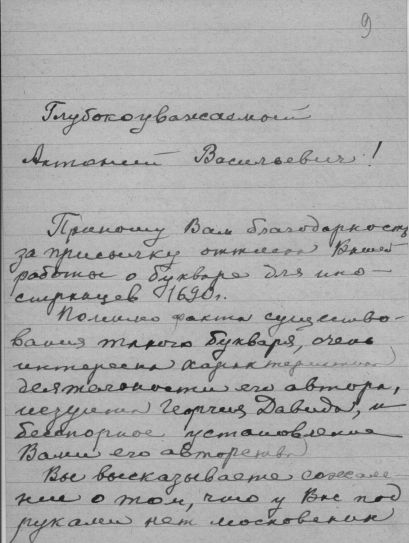 9
Глубокоуважаемый
Антоний Васильевич!
Приношу Вам благодарность
за присылку оттиска Вашей
работы о букваре для ино-
странцев 1690г.
Помимо факта существо-
вания такого букваря, очень
интересна характеристика
деятельности его автора,
иезуита Георгия Давида, и
бесспорное установление
Вами его авторства.
Вы высказываете сожале-
ние о том, что у Вас под
руками нет московских